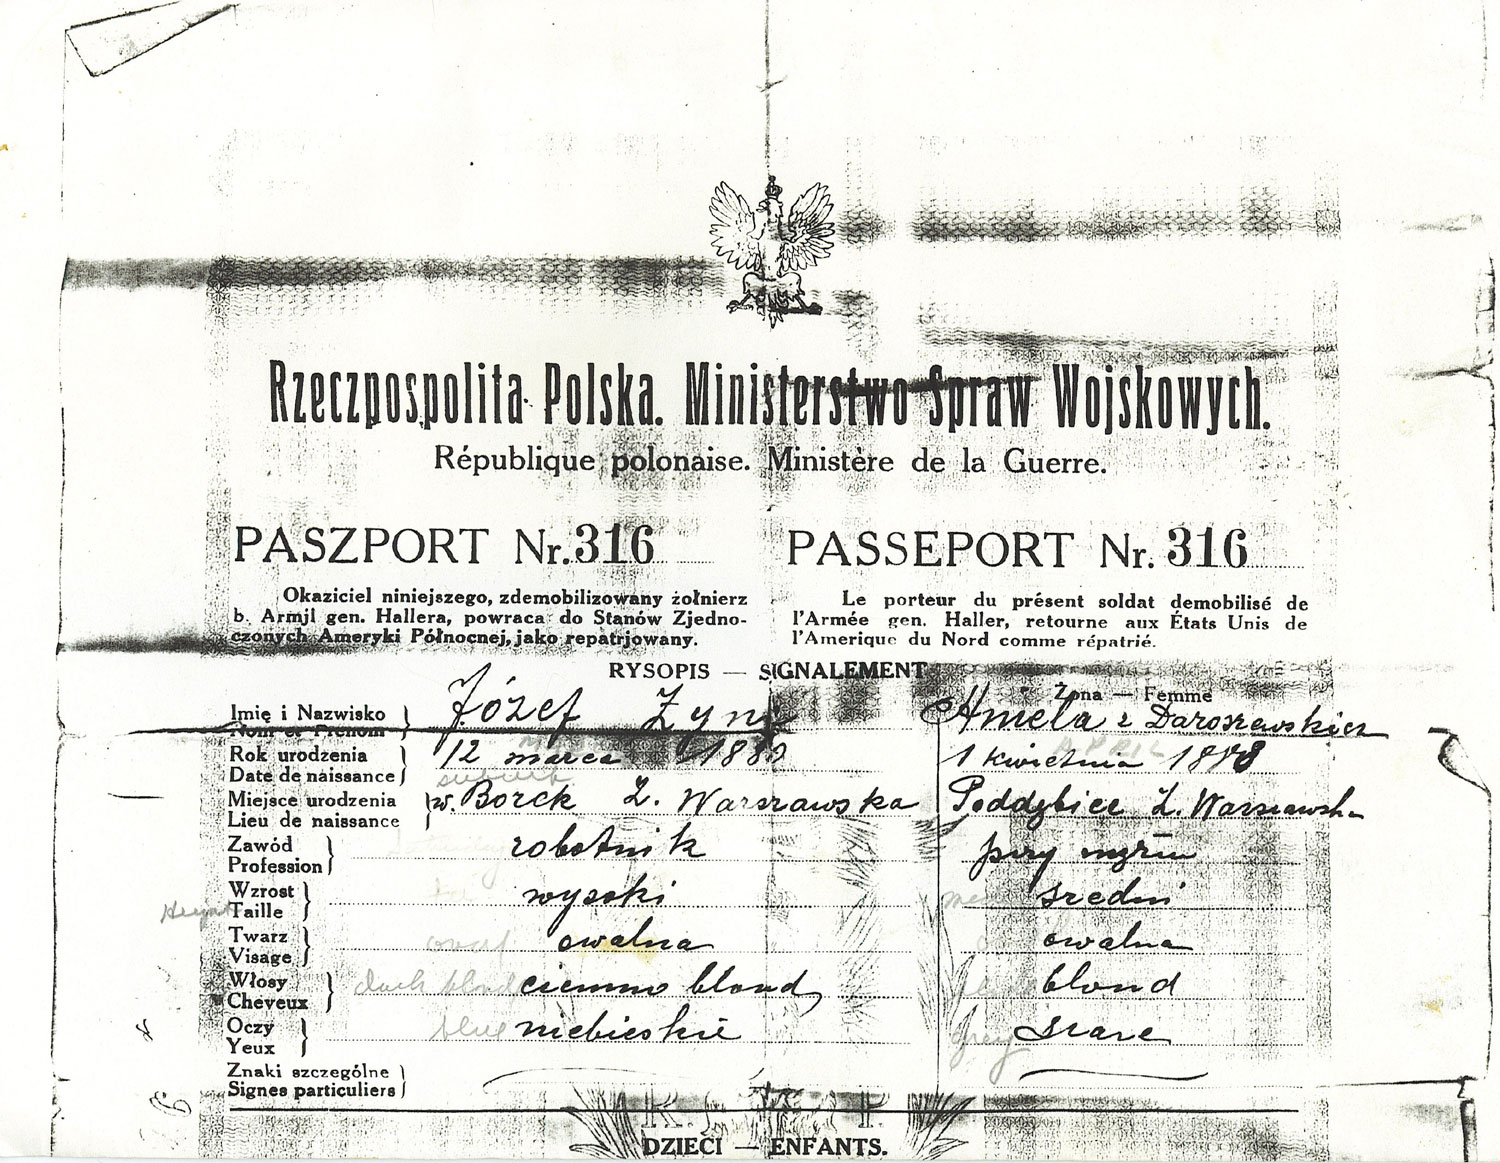 Rzeczpospolita Polska. Ministerstwo Spraw Wojskowych.
République polonaise. Ministère de la Guerre.
PASZPORT Nr. 316
Okaziciel niniejszego, zdemobilizowany żołnierz
b. Armji gen. Hallera, powraca do Stanów Zjedno-
czonych Ameryki Północnej, jako repatrjowany.
PASSEPORT Nr. 316
Le porteur du présent soldat demobilisé de
l'Armée gen. Haller, retourne aux États Unis de
l'Amerique du Nord comme répatrié.
RYSOPIS — SIGNALEMENT
Żona — Femme
Imię i Nazwisko
Nom et Prénom
Józef
Amela z Daroszewskich
Rok urodzenia
Date de naissance
12 marca
1 kwietnia
APRIL
suburb
Miejsce urodzenia
Lieu de naissance
w. Borek Z. Warszawska
Poddębice Z. Warszawska
Zawód
Profession
robotnik
przy mężu
Wzrost
Taille
wysoki
średni
Twarz
Visage
owalna
owalna
Włosy
Cheveux
dark blond ciemno blond
blond
Oczy
Yeux
blue niebieskie
grey szare
Znaki szczególne
Signes particuliers
DZIECI — ENFANTS.